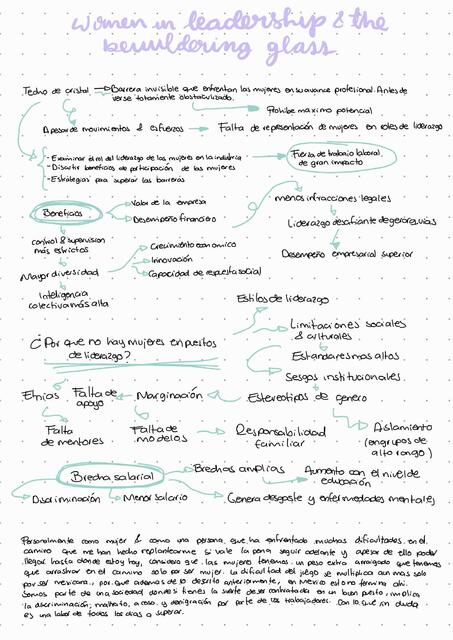 Women in leadership & the
bewildering glass
Techo de cristal → Barrera invisible que enfrentan las mujeres en su avance profesional. Antes de
verse totalmente obstaculizado.
Prohibe máximo potencial
Apesar de movimientos & esfuerzos → Falta de representación de mujeres en roles de liderazgo
- Examinar el rol del liderazgo de las mujeres en la industria
- Discutir beneficios de participación de las mujeres
- Estrategias para superar las barreras
Fuerza de trabajo laboral,
de gran impacto
Beneficios
Valor de la empresa
Desempeño financiero
menos infracciones legales
Liderazgo desafiante de gerarquias
Desempeño empresarial superior
control & supervision
más estrictos
Mayor diversidad
Inteligencia
colectiva más alta
Crecimiento economico
Innovación
Capacidad de respuesta social
Estilos de liderazgo
¿Por que no hay mujeres en puestos
de liderazgo?
Limitaciones sociales
& culturales
Estandares mas altos.
Sesgos institucionales.
Etnias
Falta de
apoyo
Marginación
Estereotipos de genero
Falta
de mentores
Falta de
modelos
Responsabilidad
familiar
Aislamiento
(en grupos de
alto rango)
Brecha salarial
Brechas amplias
Aumento con el nivel de
educación
Discriminación
Menor salario
Genera desgaste y enfermedades mentales
Personalmente como mujer & como una persona que ha enfrentado muchas dificultades en el
camino que me han hecho replantearme si vale la pena seguir adelante y apesar de ello poder
llegar hasta donde estoy hoy, considero que las mujeres tenemos un peso extra arraigado que tenemos
que arrastrar en el camino solo por ser mujer. La dificultad del juego se multiplica aun mas solo
por ser mexicana, por que ademas de lo descrito anteriormente, en México esto no termina ahí.
Somos parte de una sociedad donde si tienes la suerte de ser contratada en un buen puesto, implica
la discriminación, maltrato, acoso y denigración por parte de los trabajadores. Con lo que sin duda
es una labor de todos los días a superar.